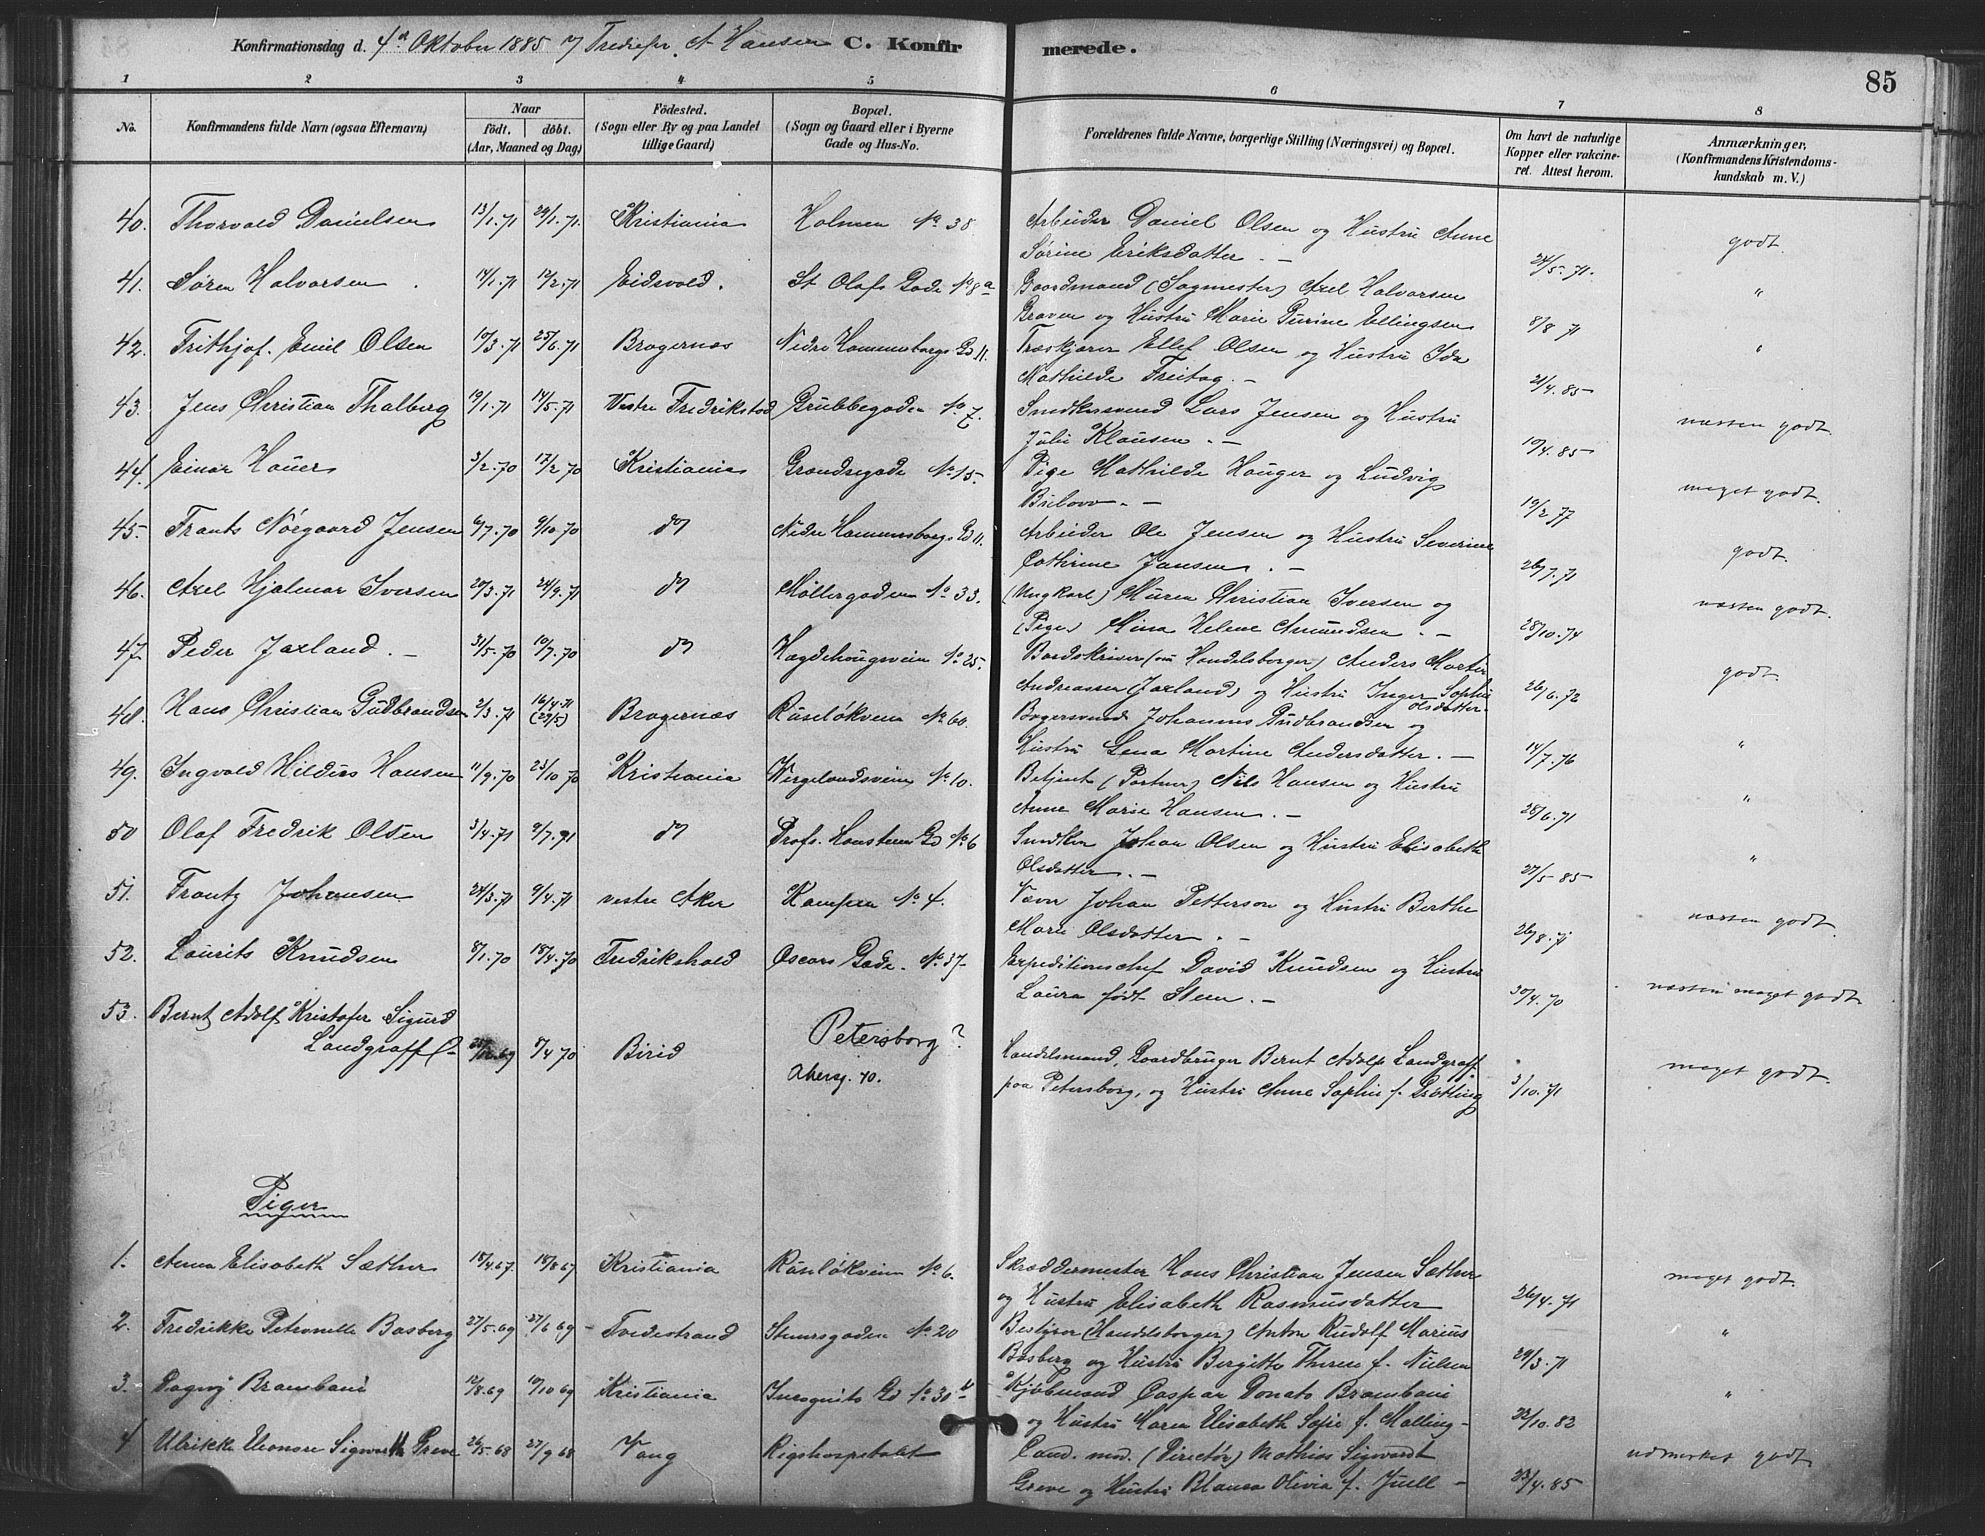 Konfirmationsdag d. 4de Oktober 1885 C. Konfirmerede.
85
1 2 3 4 5 6 7 8
No.
Konfirmandens fulde Navn (ogsaa Efternavn)
Naar
født. døbt.
(Aar, Maaned og Dag)
Fødested.
(Sogn eller By og paa Landet tillige Gaard)
Bopæl.
(Sogn og Gaard eller i Byerne Gade og Hus-No.
Forældrenes fulde Navne, borgerlige Stilling (Næringsvei) og Bopæl.
Om havt de naturlige Kopper eller vakcineret. Attest herom.
Anmærkninger.
(Konfirmandens Kristendomskundskab m. V.)
40. Thorvald Danielsen 13/1.71 29/1.71. Kristiania Holmen No 38. Arbeider Daniel Olsen og Hustru Anne
Sørine Eriksdatter. – 24/5.71. godt.
41. Søren Halvorsen 14/1.71 12/2.71 Eidsvold. St Olafs Gade No 8a Gaardmand (Sagmester) Axel Halvorsen
Graven og Hustru Marie Gurine Ellingsen 8/8 71 "
42. Frithjof Emil Olsen 10/3.71 25/6.71 Bragernæs Nedre Hammersborgs Gd 11. Træskjærer Ellef Olsen og Hustru Ida
Mathilde Freitag. – 21/4.85 "
43. Jens Christian Thalberg 19/1.71 14/5.71 Vestre Fredrikstad Grubbegaden No 7. Snedkersvend Lars Jensen og Hustru
Julie Klausen. – 19/4.85 næsten godt.
44. Einar Hauer 3/2.70 17/2.70 Kristiania Grændsegade No 15. Pige Mathilde Hauger og Ludvig
Bülow. – 19/2.77 meget godt.
45. Frants Nørgaard Jensen 6/7.70 9/10.70 do Nedre Hammersborgs Gd 11. Arbeider Ole Jensen og Hustru Severine
Cathrine Jansen. – 26/7.71 godt.
46. Axel Hjalmar Iversen 20/3.71 24/9.71 do Møllergaden No 33. (Ungkarl) Murer Christian Iversen og
(Pige) Mina Helene Amundsen. – 28/10.74 næsten godt.
47. Peder Jaxland. – 31/5.70 10/7.70 do Hægdehougsveien No 25. Bordskriver (nu Handelsborger) Anders Martin
Andreassen (Jaxland) og Hustru Inger Sophie Olsdatter. 26/6.72 godt.
48. Hans Christian Gudbrandsen 2/3.71 16/4.71 (29/5) Bragernæs Ruseløkveien No 60. Bagersvend Johannes Gudbrandsen og
Hustru Lena Martine Andersdatter. – 14/7.76 "
49. Ingvald Hildus Hansen 11/9.70 23/10.70 Kristiania Wergelandsveien No 10. Betjent (Portner) Nils Hansen og Hustru
Anne Marie Hansen. – 28/6.71 "
50 Olaf Fredrik Olsen 3/4.71 9/7.71 do Profs. Hansteens Gd No 6 Snedker Johan Olsen og Hustru Elisabeth
Olsdatter. – 27/5.85 "
51. Frantz Johansen 24/3.71 9/4.71 vestre Aker Kampen No 4. Væver Johan Petterson og Hustru Berthe
Marie Olsdatter. – 26/8.71 næsten godt.
52. Laurits Knudsen 8/1.70 18/4.70 Fredrikshald Oscars Gade. No 37. Expeditionschef David Knudsen og Hustru
Laura født Steen. – 30/4.70 næsten meget godt
53. Bernt Adolf Kristofer Sigurd
Landgraff 5/4 70 Birid Petersborg?
Akersg. 70. Handelsmand, Gaardbruger Bernt Adolf Landgraff
paa Petersborg, og Hustru Anne Sophie f. Grøtting 3/10.71 meget godt.
Piger
1. Anna Elisabeth Sæther 18/4.67. 18/8 67 Kristiania Ruseløkveien No 6. Skræddermester Hans Christian Jensen Sæther
og Hustru Elisabeth Rasmusdatter 26/4.71 meget godt.
2. Fredrikke Petronelle Basberg 27/5.69 27/6 69 Tvedestrand Stenersgaden No 20 Bestyrer (Handelsborger) Anton Rudolf Marius
Basberg og Hustru Bergitte Therese f. Nielsen 29/3.71 "
3. Dagny Brambani 12/8.69 19/10 69 Kristiania Incognito Gd No 30 b Kjøbmand Caspar Donato Brambani
og Hustru Maren Elisabeth Sofie f. Malling – 23/10.82 "
4 Ulrikke Eleonore Sigwarth Greve 26/5.68 27/9 68 Vang Rigshospitalet Cand. med. (Directør) Mathias Sigwardt
Greve og Hustru Blanca Olivia f. Juell – 23/4.85 udmerket godt